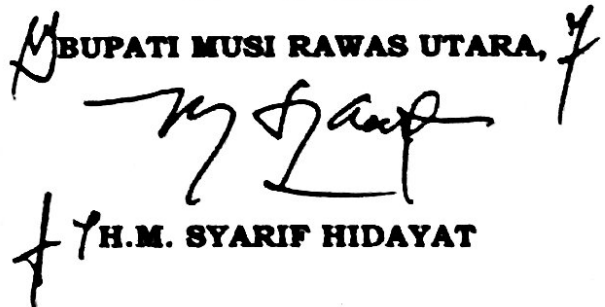 BUPATI MUSI RAWAS UTARA,
H.M. SYARIF HIDAYAT